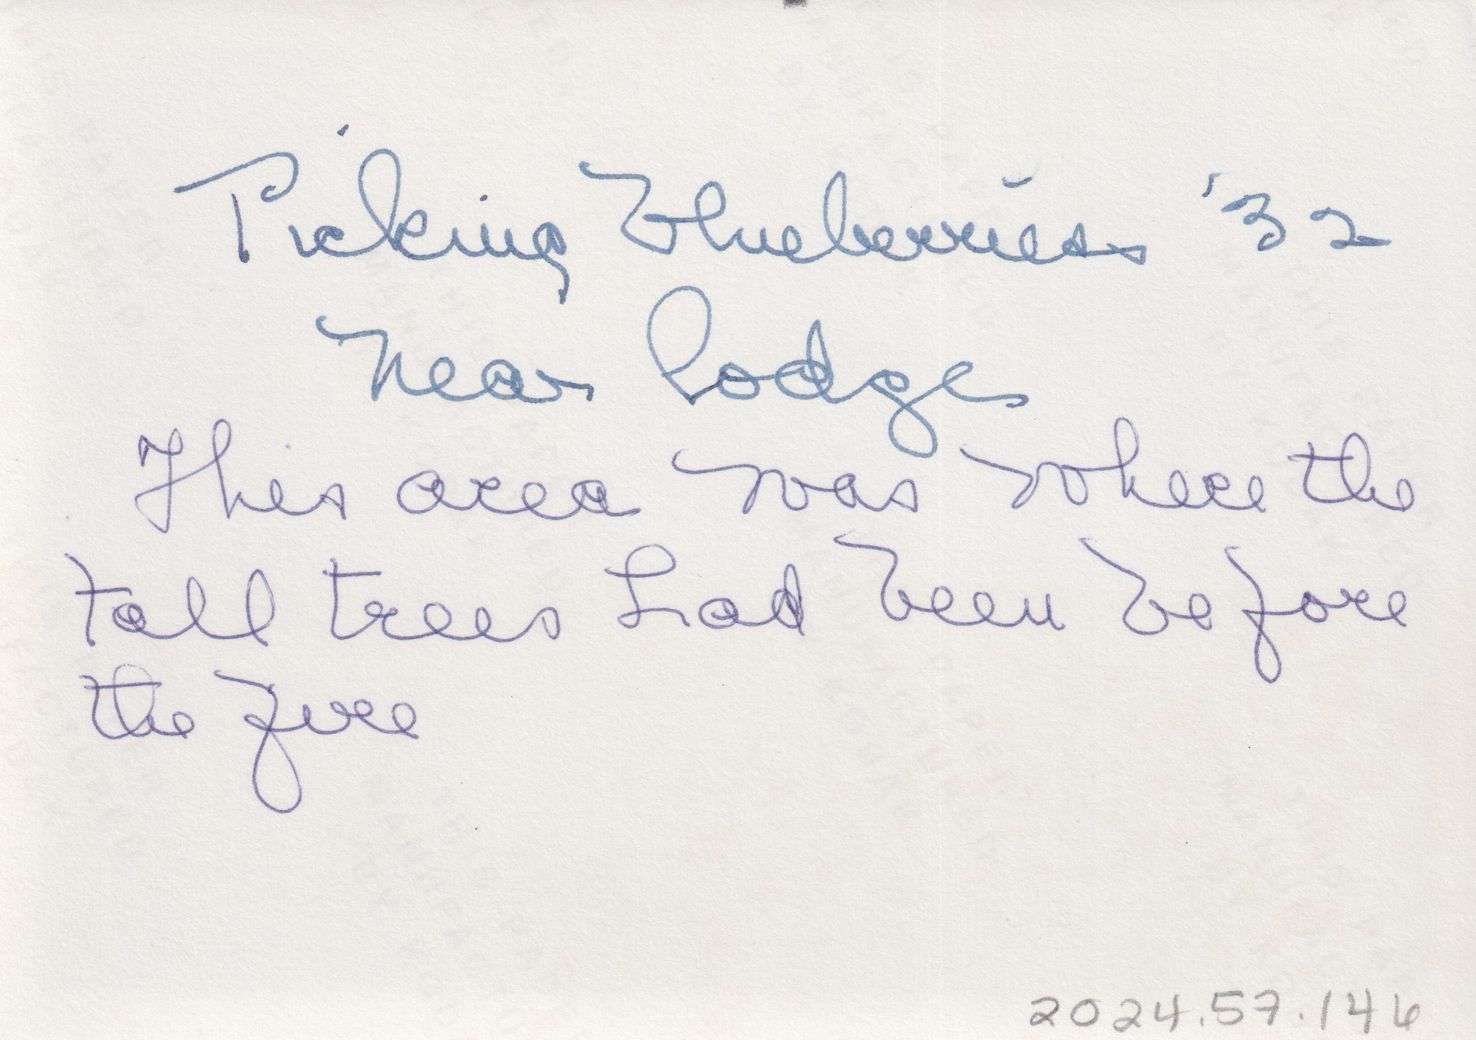 Picking blueberries '32
Near lodge
This area was where the
tall trees had been before
the fire
2024.57.146